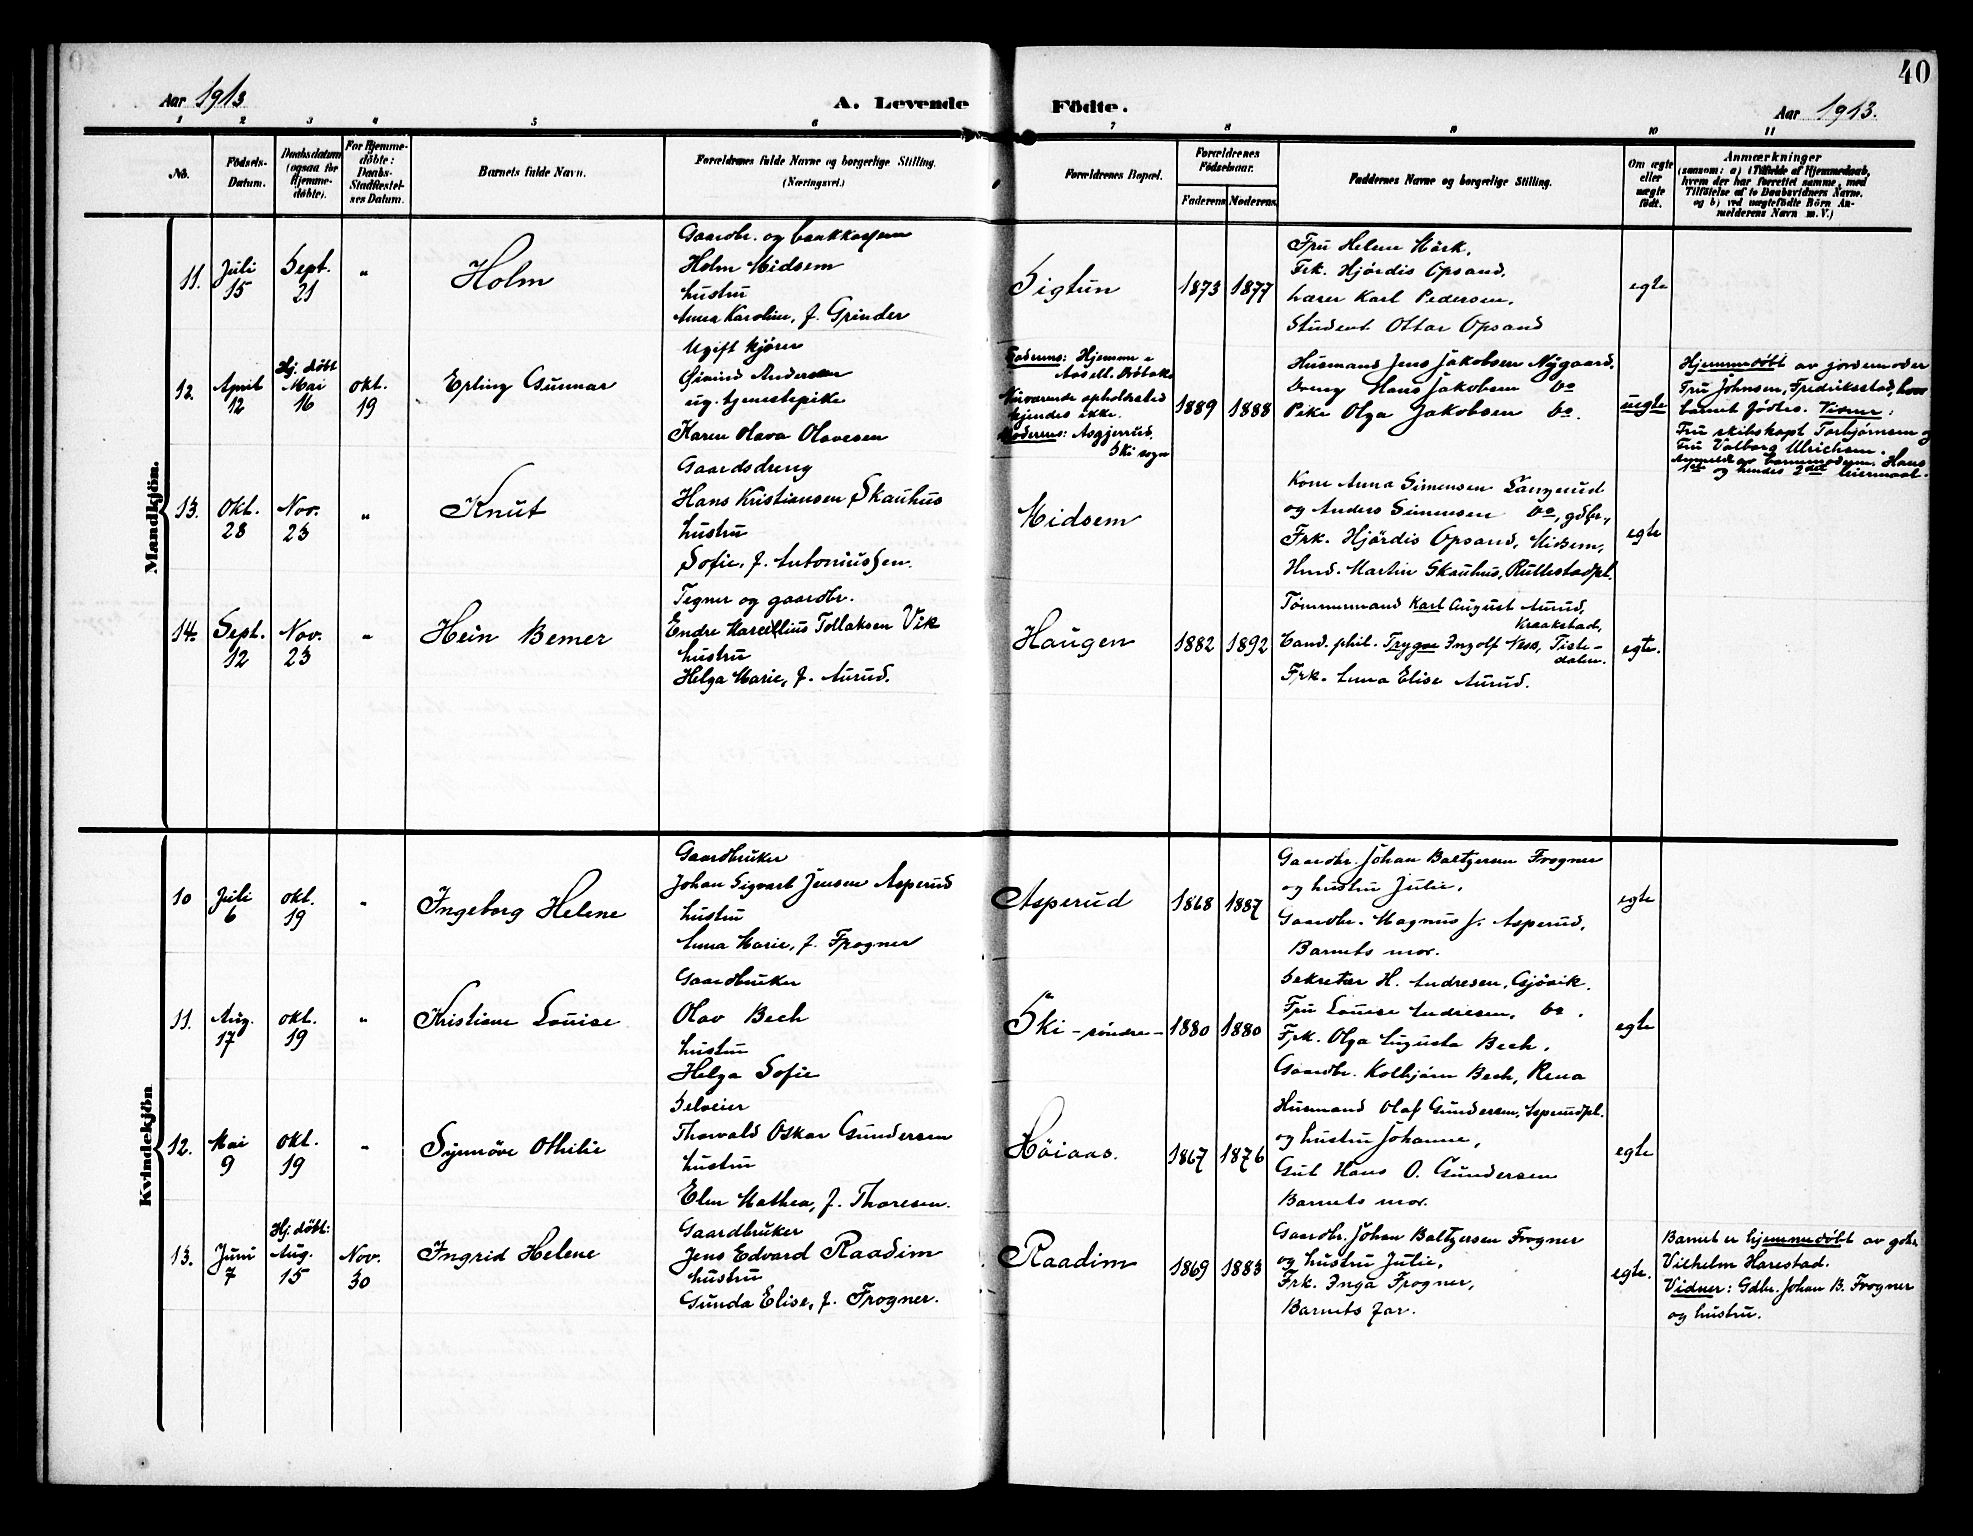 40
Aar 1913
A. Levende Födte.
Aar 1913.
1 2 3 4 5 6 7 8 9 10 11
No.
Födsels-
Datum.
Daabsdatum
(ogsaa for
Hjemme-
döbte).
For Hjemme-
döbte:
Daabs-
Stadfestel-
ses Datum.
Barnets fulde Navn.
Forældrenes fulde Navne og borgerlige Stilling.
(Næringsvei.)
Forældrenes Bopæl.
Forældrenes
Födselsaar.
Faderens Moderens.
Faddernes Navne og borgerlige Stilling.
Om ægte
eller
uægte
født.
Anmærkninger
(saasom: a) i Tilfælde af Hjemmedaab,
hvem der har forrettet samme, med
Tilföielse af to Daabsvidners Navne.
og b) ved uægtefödte Börn An-
melderens Navn m. V.)
Mandkjön.
11.
Juli
15
Sept.
21
"
Holm
Gaardbr. og bankkasserer
Holm Midsem
hustru
Anna Karoline, f. Grinder
Sigtun
1873
1877
Fru Helene Mörk,
Frk. Hjördis Opsand,
Lærer Karl Pedersen,
Student Ottar Opsand
egte
12.
April
12
Hj. döbt
Mai
16
Okt.
19
Erling Gunnar
Ugift kjører
Øivind Andersen
ug. tjenestepike
Karen Olava Olavesen
Faderens: Hjemme i
Nuværende opholdssted
kjendes ikke.
Moderens: Asgjerrud,
Ski sogn
1889
1888
Husmand Jens Jakobsen Nygaard,
Dreng Hans Jakobsen do
Pike Olga Jakobsen do.
uegte
Hjemmedöbt av jordemoder
Fru Johnsen, Fredrikstad, hvor
barnet fødtes. Vidner:
Fru skibskapt. Torbjørnsen og
Fru Valborg Ulrichsen.
Anmeldt av barnemoderen. Hans
1ste og hendes 2det leiermaal.
13.
Okt.
28
Nov.
23
"
Knut
Gaardsdreng
Hans Kristiansen Skauhus
hustru
Sofie, f. Antoniussen.
Midsem
Kone Anna Simensen Langerud
og Anders Simensen do, gdbr.,
Frk. Hjördis Opsand, Midsem,
Husd. Martin Skauhus, Rullestadpl.
egte
14.
Sept.
12
Nov.
23
"
Hein Bemer
Tegner og gaardbr.
Endre Marcellius Tollaksen Vik
hustru
Helga Marie, f. Aurud.
Haugen
1882
1892
Tömmermand Karl August Aurud,
Kraakstad,
Cand. phil. Trygve Ingolf Ness, Tiste-
dalen.
Frk. Anna Elise Aurud.
egte.
Kvindekjön
10
Juli
6
Okt.
19
"
Ingeborg Helene
Gaardbruker
Johan Sigvart Jensen Asperud
hustru
Anna Marie, f. Frogner
Asperud
1868
1887
Gaardbr. Johan Baltzersen Frogner
og hustru Julie,
Gaardbr. Magnus J. Asperud,
Barnets mor.
egte
11.
Aug.
17
Okt.
19
"
Kristiane Louise
Gaardbruker
Olav Bech
hustru
Helga Sofie
Ski - söndre -
1880
1880
Sekretær H. Andresen, Gjövik.
Fru Louise Andresen, do.
Frk. Olga Augusta Bech,
Gaardbr. Kolbjörn Bech, Rena
egte
12.
Mai
9
Okt.
19
"
Synnöve Othilie
Selveier
Thorvald Oskar Gundersen
hustru
Elen Mathea, f. Thoresen.
Höiaas.
1867
1876
Husmand Olaf Gundersen, Asperudpl.
og hustru Johanne,
Gut Hans O. Gundersen
Barnets mor.
egte
13.
Juni
7
Hj. döbt:
Aug.
15
Nov.
30
Ingrid Helene
Gaardbruker
Jens Edvard Raadim
hustru
Gunda Elise, f. Frogner.
Raadim
1869
1883
Gaardbr. Johan Baltzersen Frogner
og hustru Julie,
Frk. Inga Frogner,
Barnets far.
egte.
Barnet er hjemmedöbt av gdbr.
Vilhelm Harestad.
Vidner: Gdbr. Johan B. Frogner
og hustru.